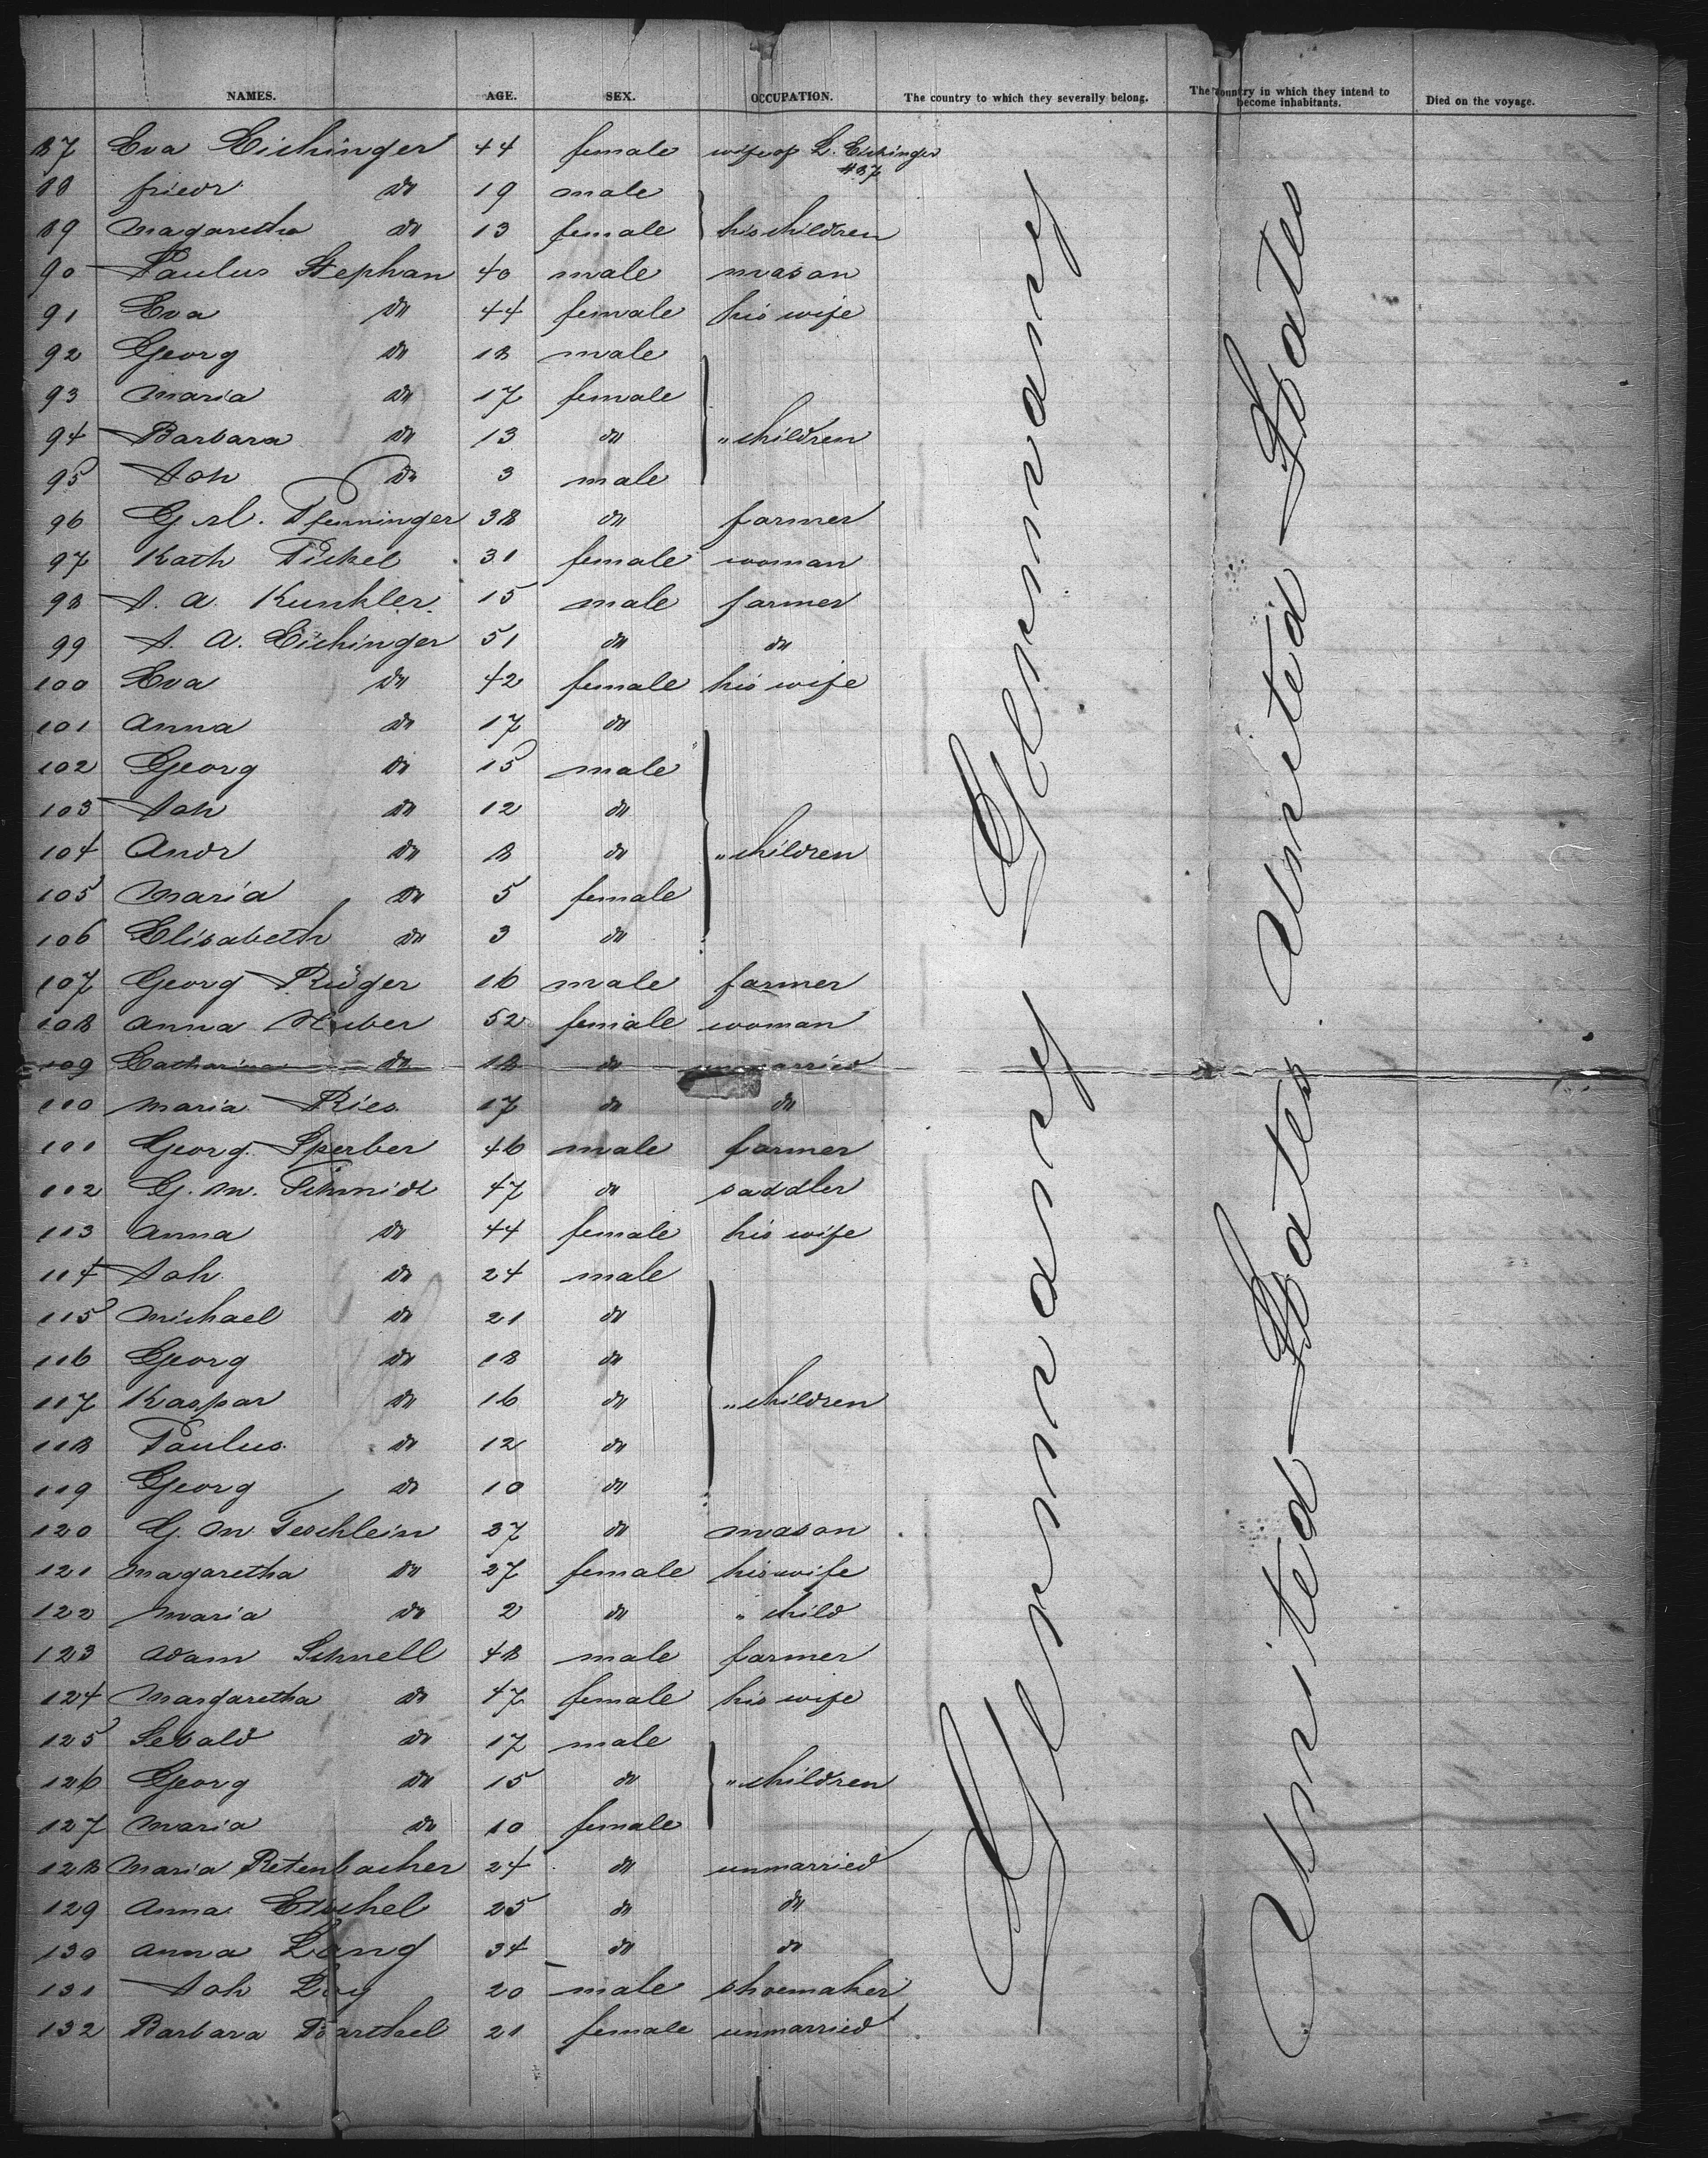 NAMES. AGE. SEX. OCCUPATION. The country to which they severally belong. The country in which they intend to become inhabitants. Died on the voyage.
87 Eva Eichinger 44 female wife of L. Eichinger #87
88 friedr do 19 male
89 Magaretha do 13 female his children
90 Paulus Stephan 40 male mason
91 Eva do 44 female his wife
92 Georg do 18 male
93 Maria do 17 female
94 Barbara do 13 do " children
95 Joh do 3 male
96 G. Pfenninger 38 do farmer
97 Kath Pickel 31 female woman
98 J. A. Kunkler 15 male farmer
99 J. A. Eichinger 51 do do
100 Eva do 42 female his wife
101 Anna do 17 do
102 Georg do 15 male
103 Joh do 12 do
104 Andr do 8 do " children
105 Maria do 5 female
106 Elisabeth do 3 do
107 Georg Rüger 16 male farmer
108 Anna Huber 52 female woman
109 Catharina do 18 do unmarried
110 Maria Ries 17 do do
111 Georg Sperber 46 male farmer
112 G. M. Schmidt 47 do saddler
113 Anna do 44 female his wife
114 Joh do 24 male
115 Michael do 21 do
116 Georg do 18 do
117 Kaspar do 16 do " children
118 Paulus do 12 do
119 Georg do 10 do
120 G. M. Teschlein 27 do mason
121 Magaretha do 27 female his wife
122 Maria do 2 do " child
123 Adam Schnell 48 male farmer
124 Margaretha do 47 female his wife
125 Sebald do 17 male
126 Georg do 15 do " children
127 Maria do 10 female
128 Maria Retenbacher 24 do unmarried
129 Anna Etschel 25 do do
130 Anna Lang 34 do do
131 Joh Loy 20 male shoemaker
132 Barbara Barthel 21 female unmarried
Germany Germany
United States United States